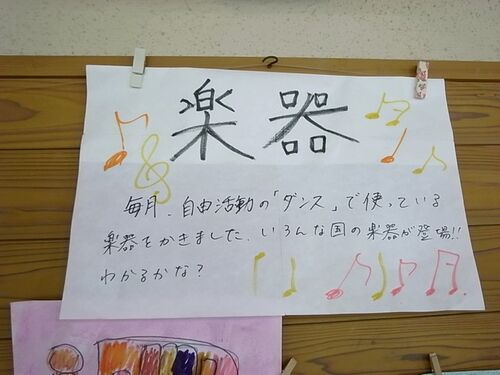 楽器
毎月、自由活動の「ダンス」で使っている
楽器をかきました。いろんな国の楽器が登場!!
わかるかな?